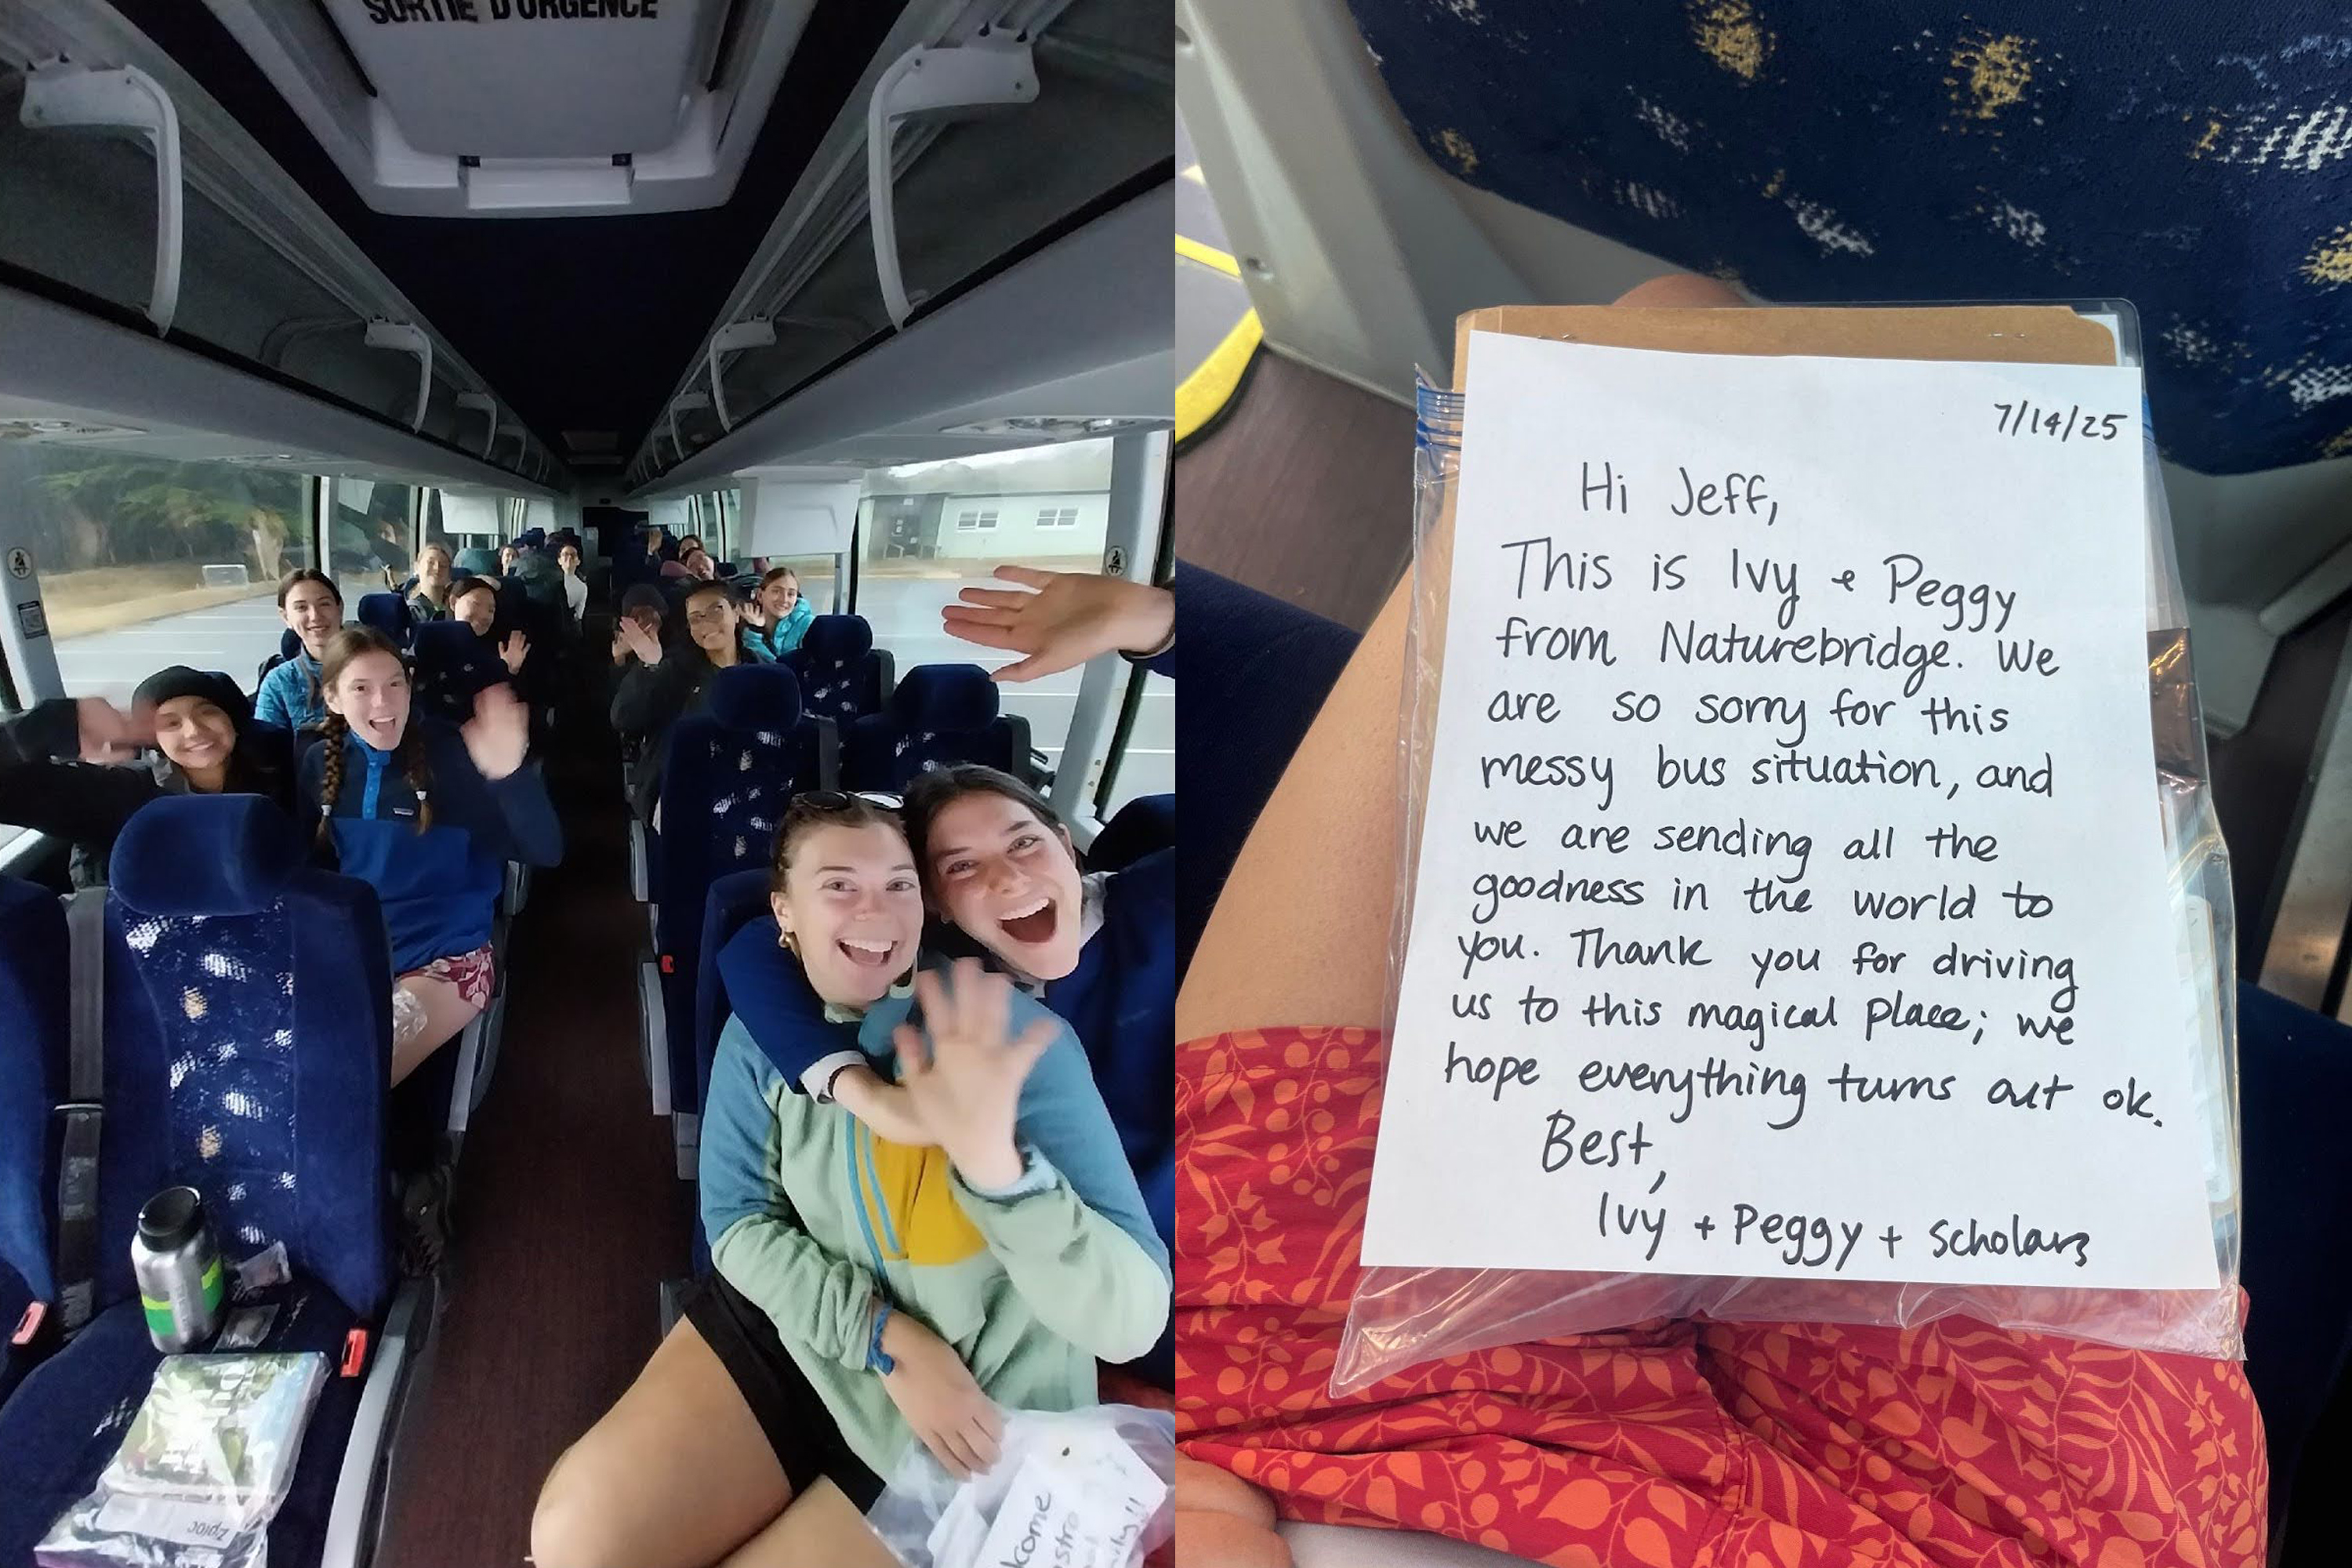 SORTIE D'URGENCE
Ziploc
7/14/25
Hi Jeff,
This is Ivy & Peggy
from Naturebridge. We
are so sorry for this
messy bus situation, and
we are sending all the
goodness in the world to
you. Thank you for driving
us to this magical place; we
hope everything turns out ok.
Best,
Ivy + Peggy + Scholars